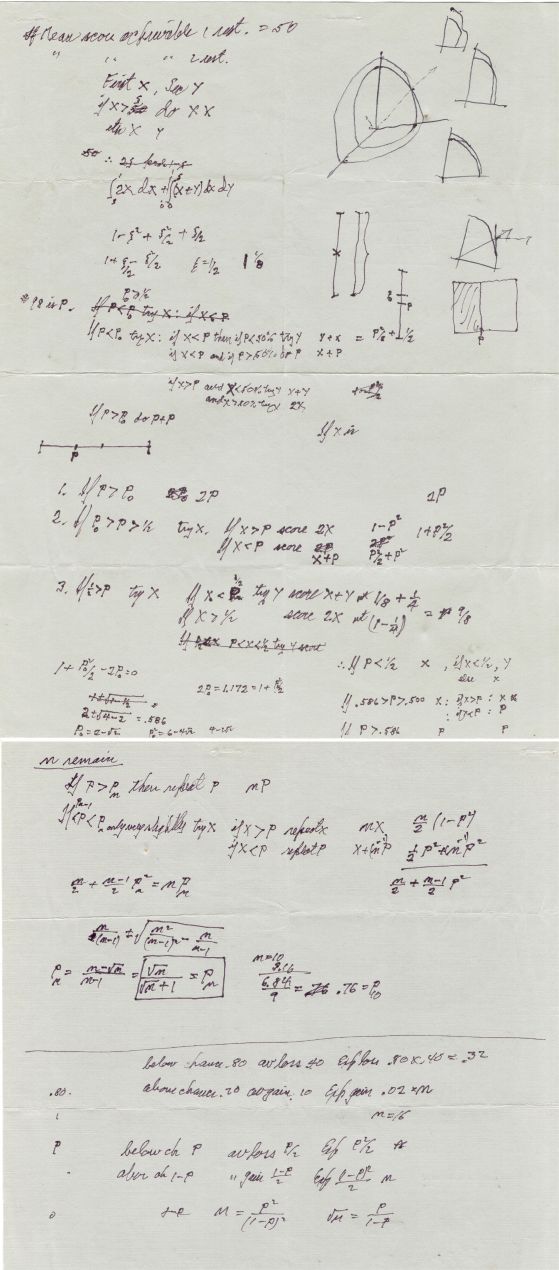 Mean score achievable 1 rest. = 50
" " " 2 rest.
First X, Sec Y
if X > ξ do X X
X Y
∫2X dX + ∫∫(X+Y) dX dY
1-ξ² + ξ²/2 + ξ/2
1+ ξ/2 - ξ²/2 ξ=1/2 1 1/8
P>1/2
If P<P₀ try X: if X<P
If P<P₀ try X: if X<P then if P<50% try Y Y+X = P²/2 + 1/2
if X<P and if P>50% do P X+P
if X>P and X<50% try Y X+Y
and X>50% try X 2X
If P>P₀ do P+P
If X is
P
1. If P>P₀ 2P 2P
2. If P₀>P>1/2 try X. If X>P score 2X 1-P² 1+P²/2
If X<P score X+P P²/2+P²
3. If 1/2>P try X If X<1/2 try Y score X+Y 1/8 + 1/4
If X>1/2 score 2X (1-1/4) = 9/8
P<X<1/2 try Y score
1+P₀²/2 -2P₀=0 2P₀=1.172=1+P₀²/2
∴ If P<1/2 X, if X<1/2, Y
else X
2±√4-2 = .586
If .586>P>.500 X: if X>P: X
: if X<P: P
P₀=2-√2 P₀²=6-4√2 4-2√2
If P>.586 P P
n remain
If P>Pₙ then repeat P nP
If Pₙ₋₁<P<Pₙ only very slightly try X if X>P repeat X nX n/2 (1-P²)
if X<P repeat P X+(n-1)P 1/2 P²+(n-1)P²
n/2 + n-1/2 Pₙ² = nPₙ n/2 + n-1/2 P²
n/(n-1) ± √n²/(n-1)² - n/n-1
Pₙ = n-√n/n-1 = √n/√n+1 = Pₙ
n=10
3.16
6.84/9 = .76 = P₁₀
below chance .80 av loss .40 Exp loss .80 X .40 = .32
.80. above chance .20 av gain .10 Exp gain .02 × n
1 n=16
P below ch P av loss P/2 Exp P²/2
above ch 1-P " gain 1-P/2 Exp (1-P)²/2 n
0 1-P n = P²/(1-P)² √n = P/1-P